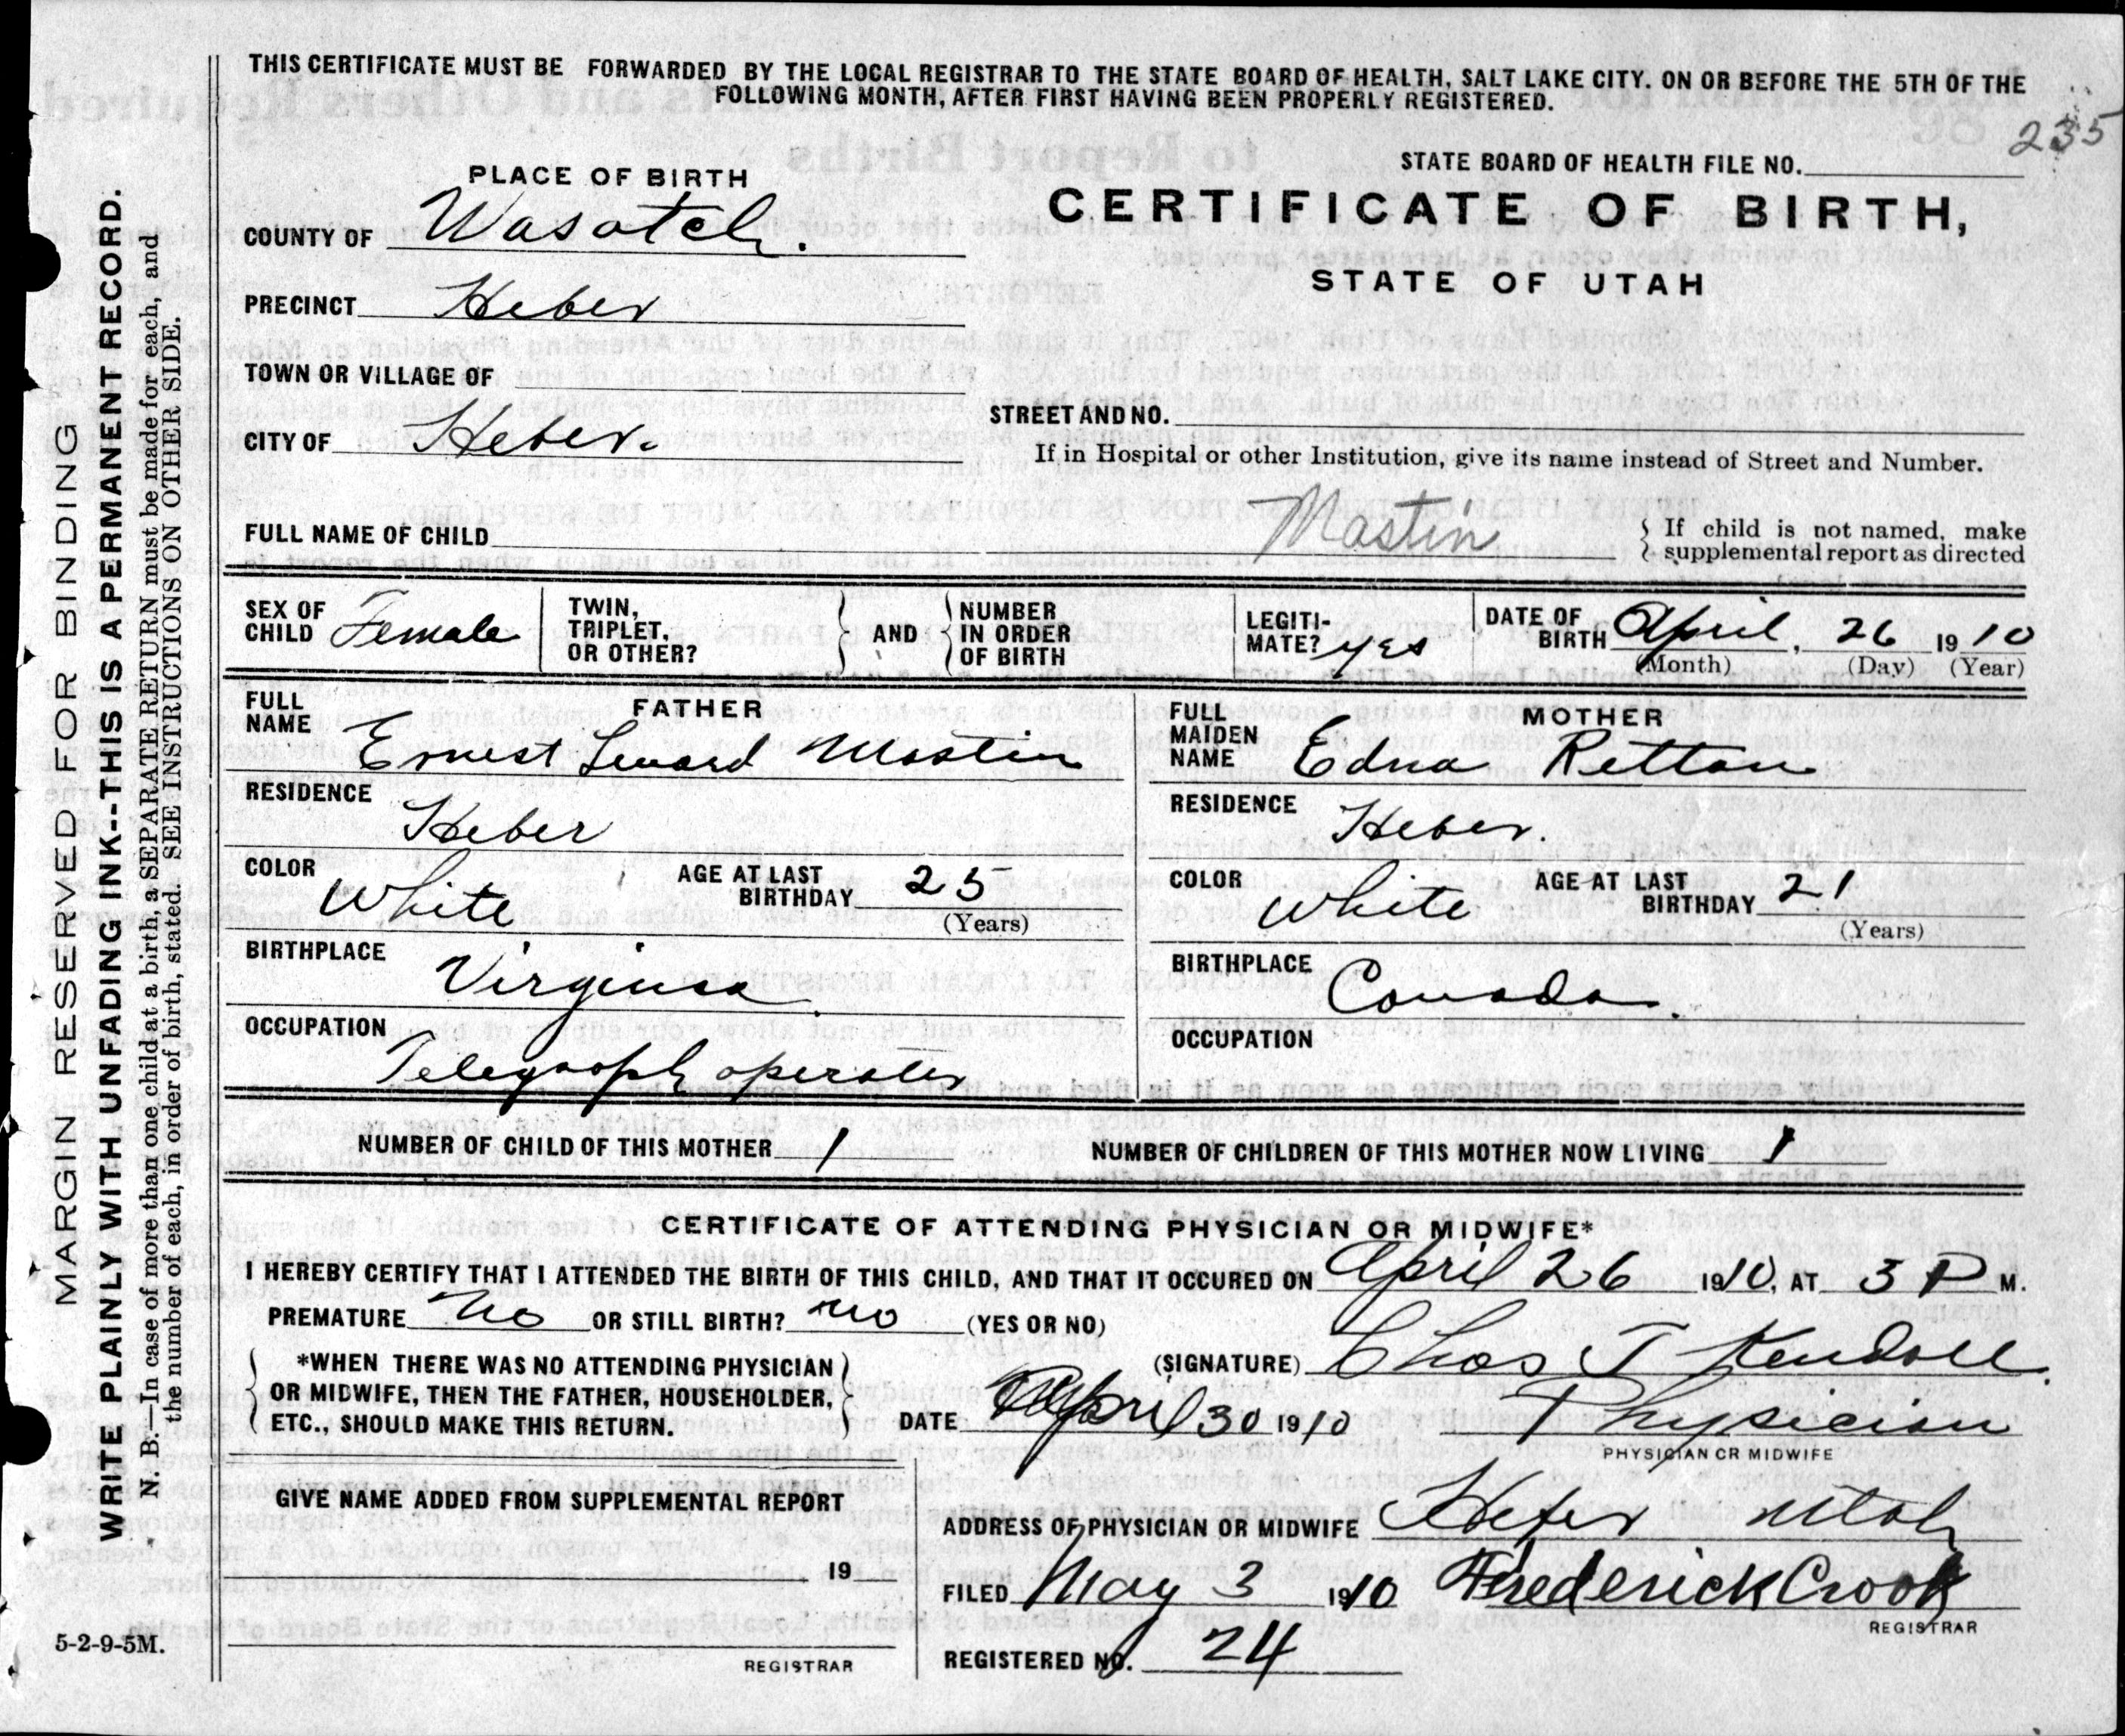 THIS CERTIFICATE MUST BE FORWARDED BY THE LOCAL REGISTRAR TO THE STATE BOARD OF HEALTH, SALT LAKE CITY. ON OR BEFORE THE 5TH OF THE
FOLLOWING MONTH, AFTER FIRST HAVING BEEN PROPERLY REGISTERED.
235
STATE BOARD OF HEALTH FILE NO.
CERTIFICATE OF BIRTH,
STATE OF UTAH
PLACE OF BIRTH
COUNTY OF Wasatch.
PRECINCT Heber
TOWN OR VILLAGE OF
CITY OF Heber.
STREET AND NO.
If in Hospital or other Institution, give its name instead of Street and Number.
FULL NAME OF CHILD Mastin
If child is not named, make
supplemental report as directed
SEX OF CHILD Female
TWIN, TRIPLET, OR OTHER?
AND
NUMBER IN ORDER OF BIRTH
LEGITI-MATE? yes
DATE OF BIRTH April, 26 1910
(Month) (Day) (Year)
FATHER
FULL NAME Ernest Mastin
RESIDENCE Heber
COLOR White
AGE AT LAST BIRTHDAY 25
(Years)
BIRTHPLACE Virginia
OCCUPATION Telegraph operator
MOTHER
FULL MAIDEN NAME Edna
RESIDENCE Heber.
COLOR White
AGE AT LAST BIRTHDAY 21
(Years)
BIRTHPLACE Canada.
OCCUPATION
NUMBER OF CHILD OF THIS MOTHER 1
NUMBER OF CHILDREN OF THIS MOTHER NOW LIVING 1
CERTIFICATE OF ATTENDING PHYSICIAN OR MIDWIFE*
I HEREBY CERTIFY THAT I ATTENDED THE BIRTH OF THIS CHILD, AND THAT IT OCCURED ON April 26 1910, AT 3 P M.
PREMATURE No OR STILL BIRTH? no (YES OR NO)
*WHEN THERE WAS NO ATTENDING PHYSICIAN
OR MIDWIFE, THEN THE FATHER, HOUSEHOLDER,
ETC., SHOULD MAKE THIS RETURN.
(SIGNATURE) Chas T Kendall.
DATE April 30 1910 Physician
PHYSICIAN OR MIDWIFE
GIVE NAME ADDED FROM SUPPLEMENTAL REPORT
19
REGISTRAR
ADDRESS OF PHYSICIAN OR MIDWIFE Heber Utah
FILED May 3 1910 Frederick Crook
REGISTRAR
REGISTERED NO. 24
5-2-9-5M.
MARGIN RESERVED FOR BINDING
WRITE PLAINLY WITH UNFADING INK--THIS IS A PERMANENT RECORD.
N. B.—In case of more than one child at a birth, a SEPARATE RETURN must be made for each, and
the number of each, in order of birth, stated. SEE INSTRUCTIONS ON OTHER SIDE.